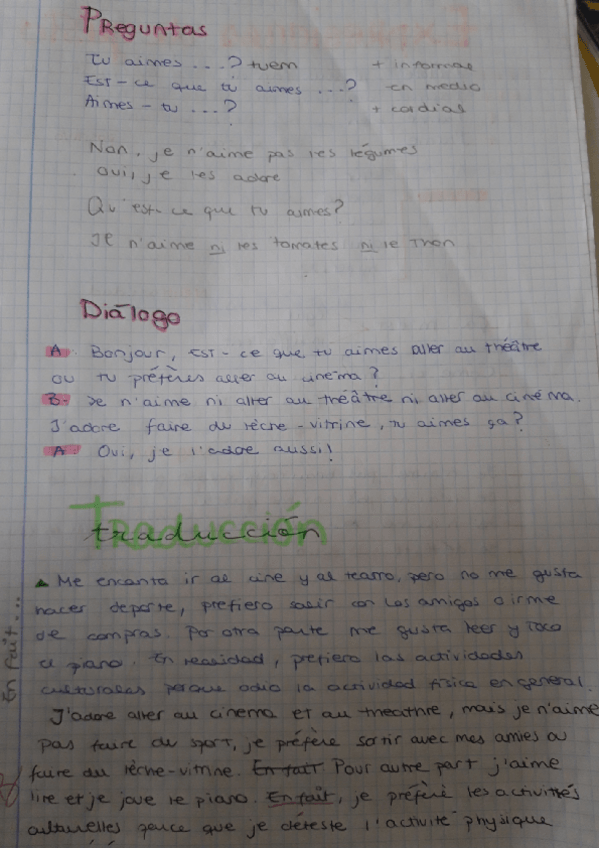 Preguntas
Tu aimes ...? + informal
Est-ce que tu aimes ...? en medio
Aimes-tu ...? + cordial
Non, je n'aime pas les légumes
Oui, je les adore
Qu'est-ce que tu aimes?
Je n'aime ni les tomates ni le thon
Diálogo
A. Bonjour, est-ce que tu aimes aller au théâtre
ou tu préfères aller au cinéma?
B. Je n'aime ni aller au théâtre ni aller au cinéma.
J'adore faire du lèche-vitrine, tu aimes ça?
A. Oui, je l'adore aussi!
Traducción
traducción
Me encanta ir al cine y al teatro, pero no me gusta
hacer deporte, prefiero salir con los amigos o irme
de compras. Por otra parte me gusta leer y toco
el piano. En realidad, prefiero las actividades
culturales porque odio la actividad física en general.
J'adore aller au cinema et au theathre, mais je n'aime
pas faire du sport, je préfère sortir avec mes amies ou
faire du lèche-vitrine. En fait Pour autre part j'aime
lire et je joue le piano. En fait, je préfère les activités
culturelles parce que je déteste l'activité physique
En fait...